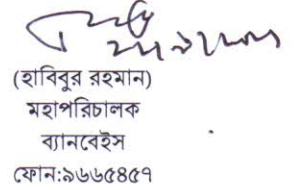 (হাবিবুর রহমান)
মহাপরিচালক
ব্যানবেইস
ফোন:৯৬৬৫৪৫৭